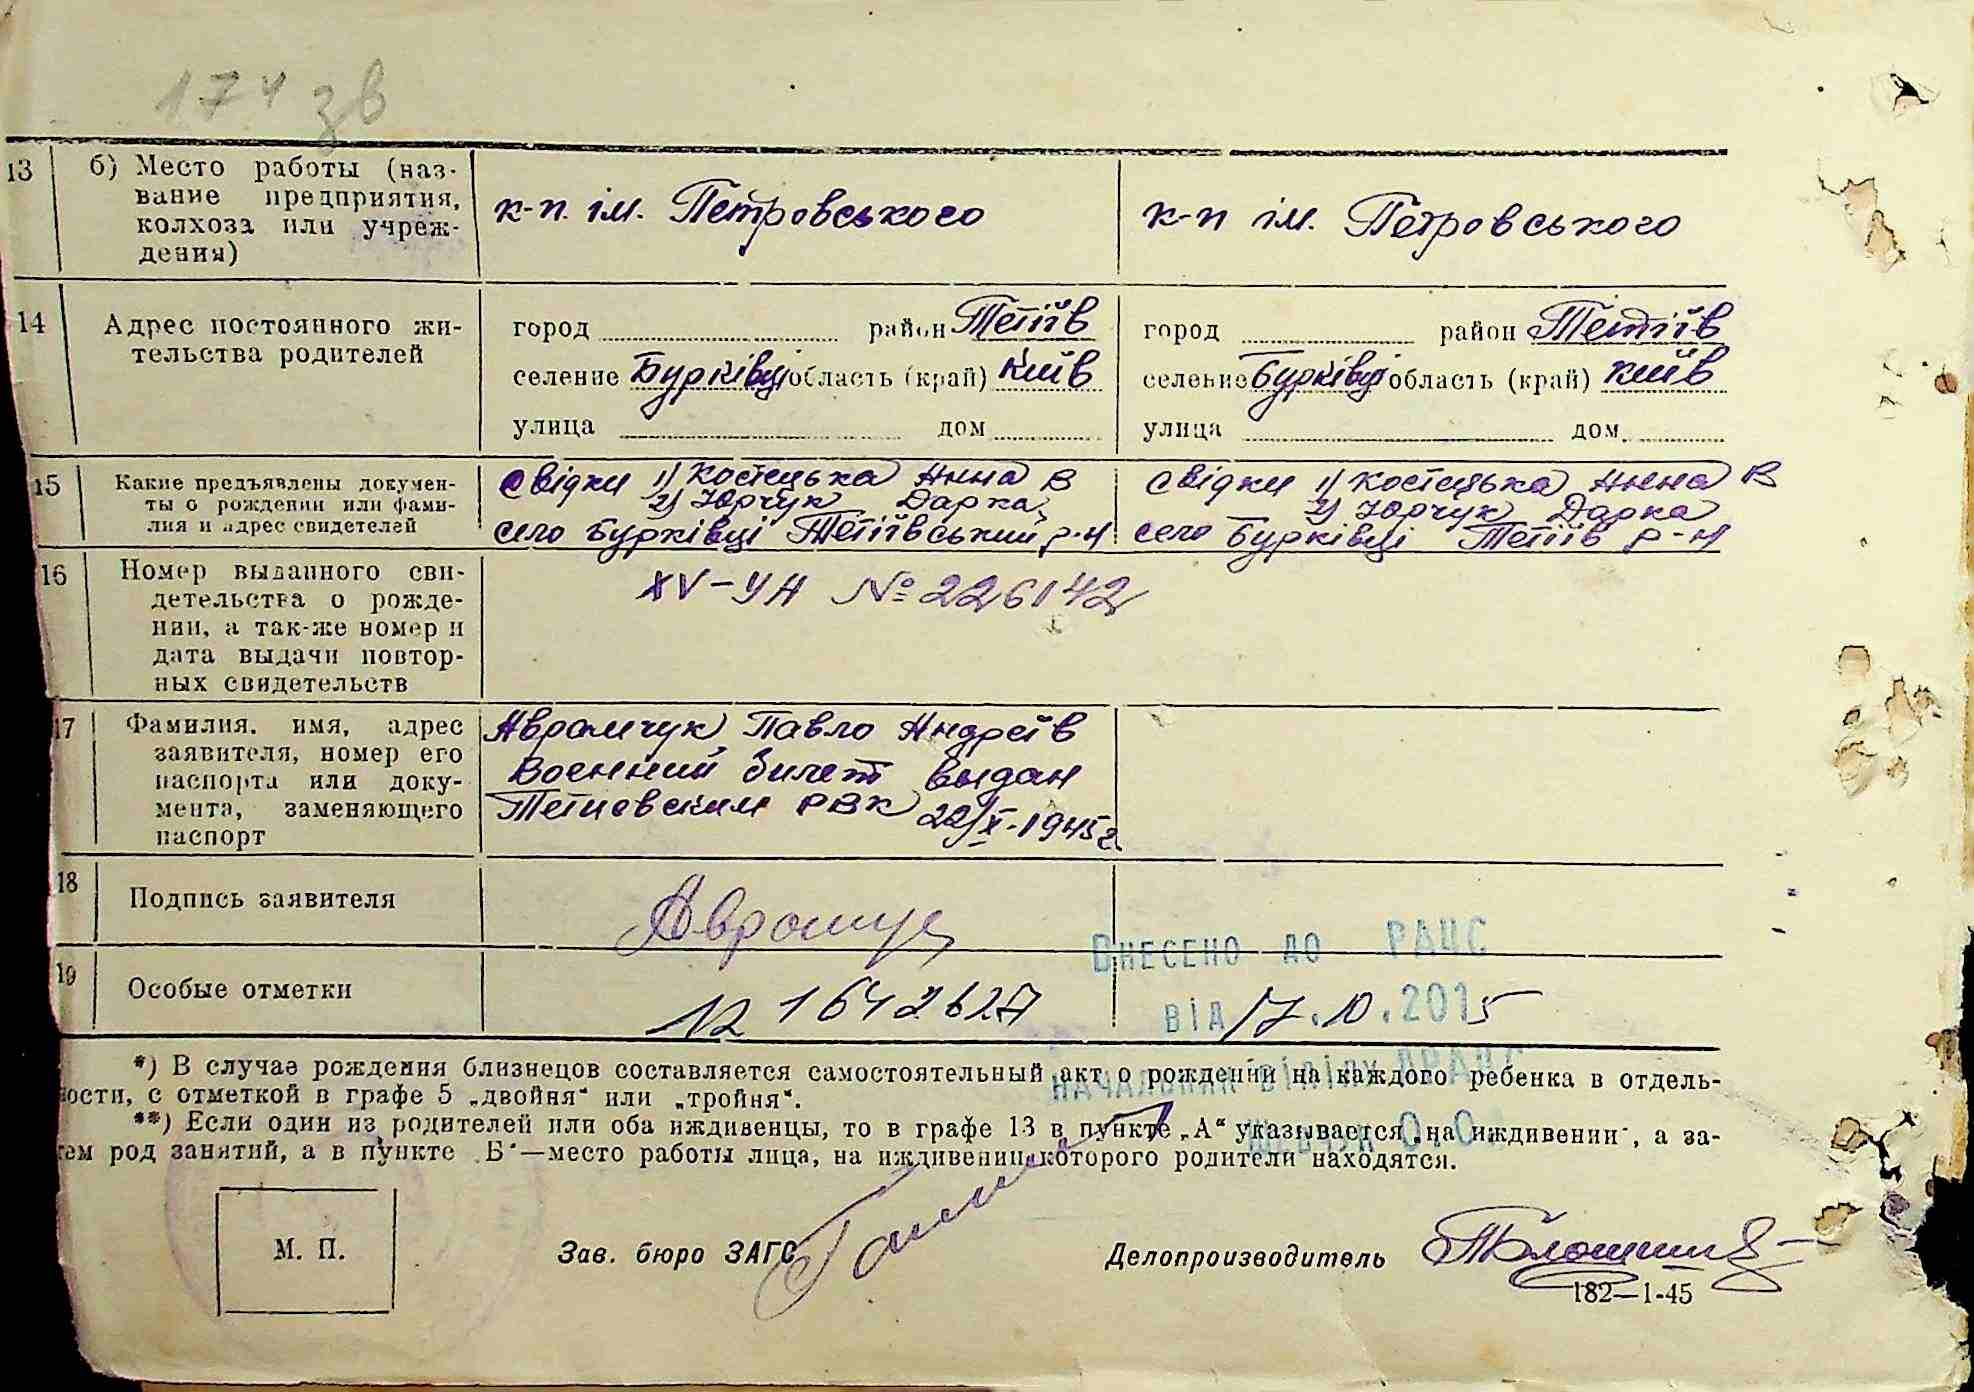 174 зв
13 б) Место работы (наз-
вание предприятия,
колхоза или учреж-
дения)
к-п. ім. Петровського
к-п ім. Петровського
14 Адрес постоянного жи-
тельства родителей
город район Тетіїв
селение Бурківці область (край) Київ
улица дом
город район Тетіїв
селение Бурківці область (край) Київ
улица дом
15 Какие предъявлены докумен-
ты о рождении или фами-
лия и адрес свидетелей
Свідки 1) Костецька Анна В
2) Юрчук Дарка
село Бурківці Тетіївський р-н
Свідки 1) Костецька Анна В
2) Юрчук Дарка
село Бурківці Тетіїв р-н
16 Номер выданного сви-
детельства о рожде-
нии, а так-же номер и
дата выдачи повтор-
ных свидетельств
XV-УН № 226142
17 Фамилия, имя, адрес
заявителя, номер его
паспорта или доку-
мента, заменяющего
паспорт
Аврамчук Павло Андреів
Военний билет выдан
Тетиевским РВК 22/X-1945 г
18 Подпись заявителя
19 Особые отметки
1642627
Внесено до РАЦС
від 17.10.2015
Начальник відділу ДРАЦС
*) В случае рождения близнецов составляется самостоятельный акт о рождении на каждого ребенка в отдель-
ности, с отметкой в графе 5 „двойня“ или „тройня“.
**) Если один из родителей или оба иждивенцы, то в графе 13 в пункте „А“ указывается „на иждивении“, а за-
тем род занятий, а в пункте „Б“—место работы лица, на иждивении которого родители находятся.
М. П.
Зав. бюро ЗАГС
Делопроизводитель
182—1-45